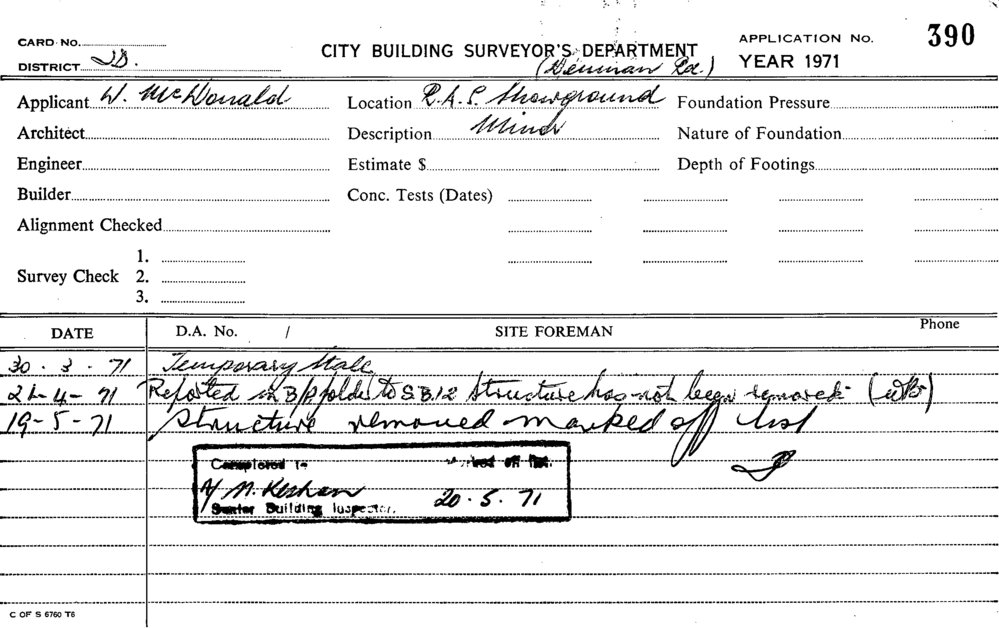 CARD No. APPLICATION No. 390
CITY BUILDING SURVEYOR'S DEPARTMENT
DISTRICT YEAR 1971
Applicant W. McDonald Location R.A.S. Showground Foundation Pressure
Architect Description Minor Nature of Foundation
Engineer Estimate $ Depth of Footings
Builder Conc. Tests (Dates)
Alignment Checked
1.
Survey Check 2.
3.
DATE D.A. No. / SITE FOREMAN Phone
30 . 3 . 71 Temporary Stall
21-4-71 Reported in B/P folder to S.B.12 Structure has not been removed
19-5-71 Structure removed marked off list
Completed marked off list.
20.5.71
Senior Building Inspector.
C OF S 6760 T6